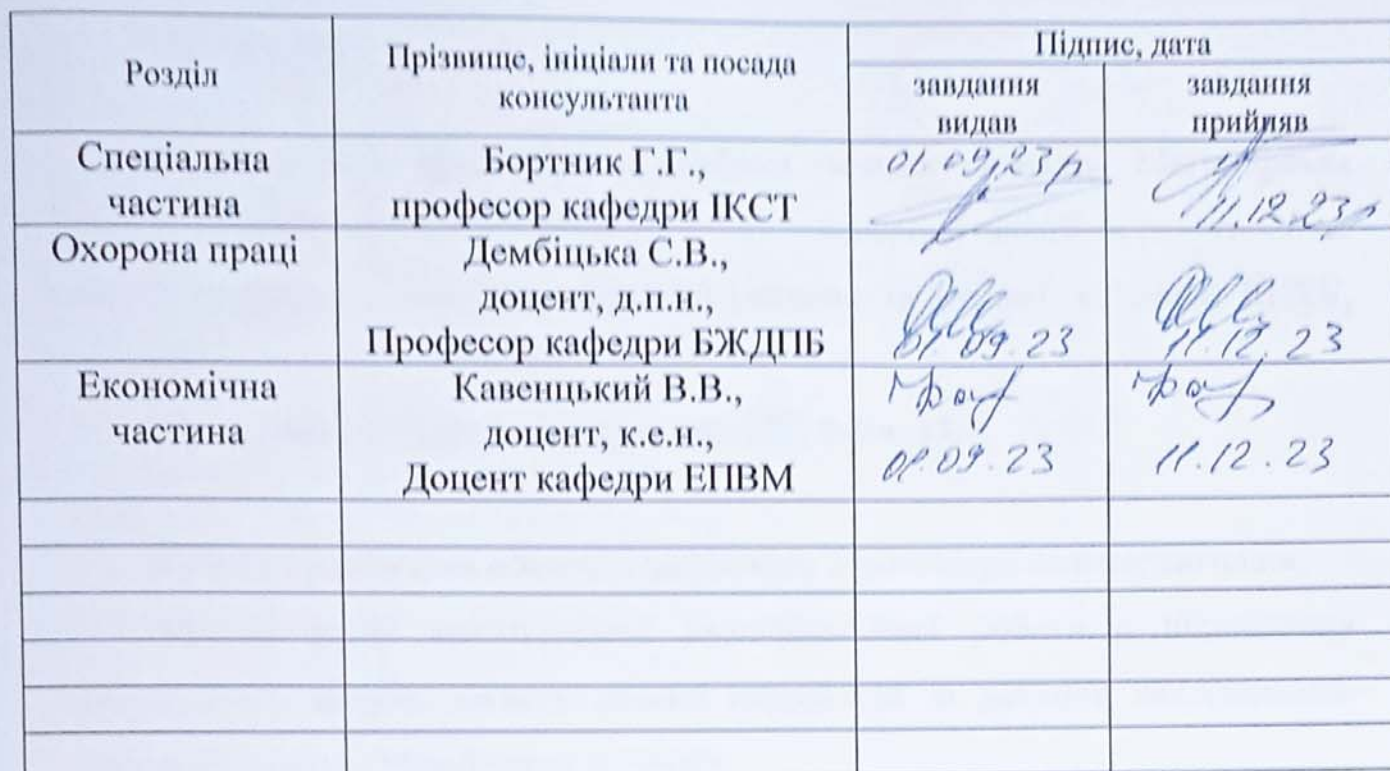 Розділ
Прізвище, ініціали та посада
консультанта
Підпис, дата
завдання
видав
завдання
прийняв
Спеціальна
частина
Бортник Г.Г.,
професор кафедри ІКСТ
01.09.23р
11.12.23р
Охорона праці
Дембіцька С.В.,
доцент, д.п.н.,
Професор кафедри БЖДПБ
01.09.23
11.12.23
Економічна
частина
Кавецький В.В.,
доцент, к.е.н.,
Доцент кафедри ЕПВМ
01.09.23
11.12.23